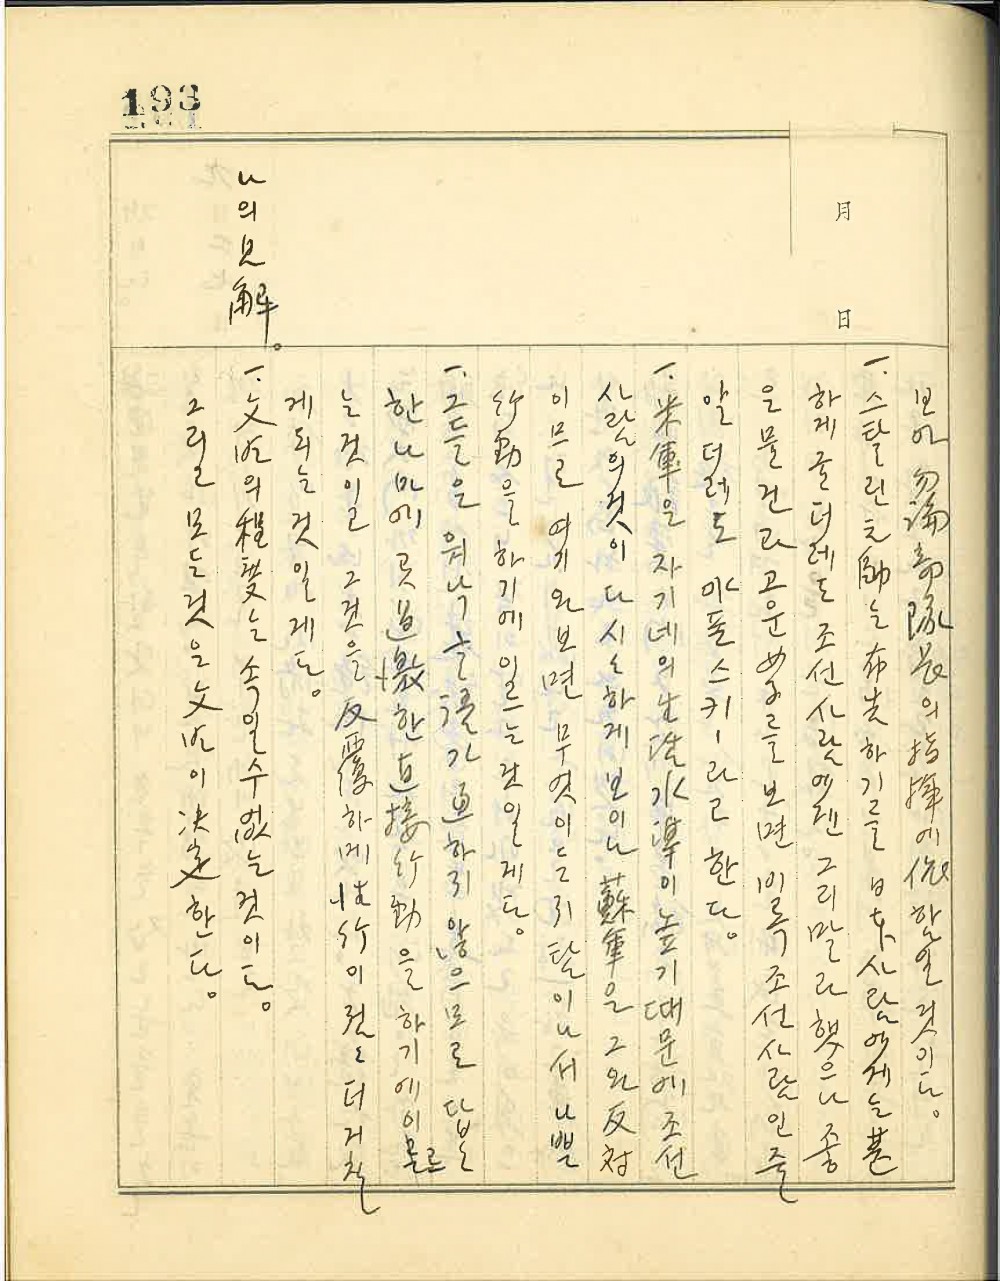 193
月
日
보아 勿論 部隊長의 指揮에 依한일 것이다。
一. 스탈린元帥는 布告하기를 日本사람에게는
하게 굴더레도 조선사람에겐 그리말라 했으나 좋
은 물건과 고운 女子를 보면 비록 조선사람인줄
알더레도 야폰스키ー라고 한다。
一. 米軍은 자기네의 生活水準이 높기때문에 조선
사람의것이 다시시하게 보이나 蘇軍은 그와 反対
이므로 여기와 보면 무엇이든지 탐이나서 나쁜
行動을 하기에 일르는것일게다。
一. 그들은 워낙 言語가 通하지 않으므로 답답
한 나마에 곳 過激한 直接行動을 하기에 이르
는것이고 그것을 反覆하메 性行이 점점 더 거칠
게 되는 것일게다。
나의 見解。
一. 文化의 程度는 속일수없는 것이다。
그리고 모든것은 文化이 決定한다。